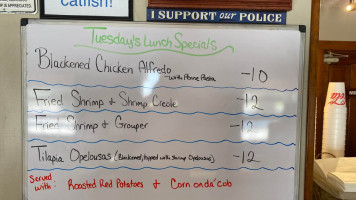 APPRECIATED
catfish!
I SUPPORT our POLICE
Tuesday's Lunch Specials
Blackened Chicken Alfredo -with Penne Pasta -10
Fried Shrimp & Shrimp Creole -12
Fried Shrimp & Grouper -12
Tilapia Opelousas (Blackened, topped with Shrimp Opelousas) -12
Served with: Roasted Red Potatoes & Corn onda' cob